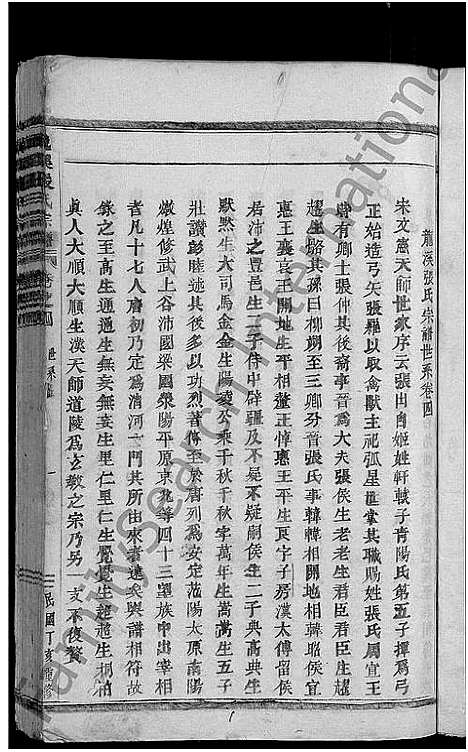 龍溪張氏宗譜世系卷四
宋文憲天師世家序云張出自姬姓軒轅子青陽氏第五子揮爲弓
正始造弓矢張羅以取禽獸主祀弧星世掌其職賜姓張氏周宣王
時有卿士張仲其後裔事晉爲大夫張侯生老老生君臣君臣生趯
趯生骼其孫曰柳朔至三卿分晉張氏事韓韓相開地相韓昭侯宣
惠王襄哀王開地生平相釐王悼惠王平生良字子房漢太傅留侯
居沛之豐邑生二子侍中辟疆及不疑不疑嗣侯生二子典高典生
默默生大司馬金金生陽陵公乘千秋千秋字萬年生嵩嵩生五子
壯讚彭睦述其後多以功烈著傳至於唐列爲安定范陽太原南陽
燉煌修武上谷沛國梁國滎陽平原京兆等四十三望族中出宰相
者凡十七人唐初乃定爲清河一門其所由來者遠矣與譜相符故
錄之至高生通通生無妄無妄生里仁里仁生覺覺生趙趙生桐柏
眞人大順大順生漢天師道陵爲玄教之宗乃另一支不復贅
張氏宗譜 卷之四 世系
一
民國丁亥重修
1
FamilySearch International